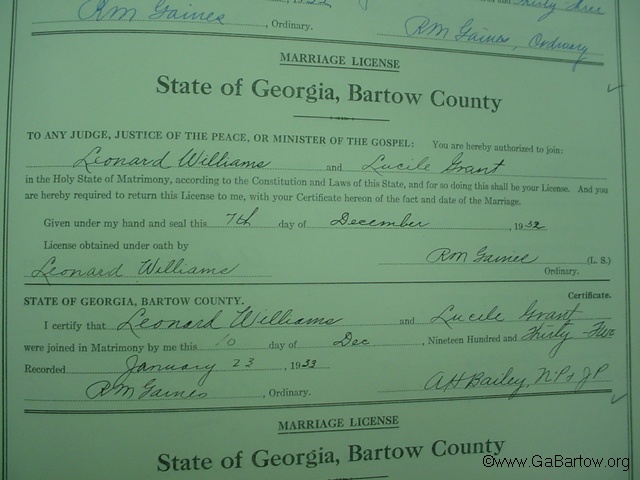 RM Gaines, Ordinary. RM Gaines, Ordinary
MARRIAGE LICENSE
State of Georgia, Bartow County
TO ANY JUDGE, JUSTICE OF THE PEACE, OR MINISTER OF THE GOSPEL: You are hereby authorized to join:
Leonard Williams and Lucile Grant
in the Holy State of Matrimony, according to the Constitution and Laws of this State, and for so doing this shall be your License. And you
are hereby required to return this License to me, with your Certificate hereon of the fact and date of the Marriage.
Given under my hand and seal this 7th day of December, 1932
License obtained under oath by RM Gaines (L. S.)
Leonard Williams Ordinary.
STATE OF GEORGIA, BARTOW COUNTY. Certificate.
I certify that Leonard Williams and Lucile Grant
were joined in Matrimony by me this 10 day of Dec, Nineteen Hundred and Thirty
Recorded January 23, 1933
RM Gaines, Ordinary. AH Bailey, N.P. & J P
MARRIAGE LICENSE
State of Georgia, Bartow County
©www.GaBartow.org